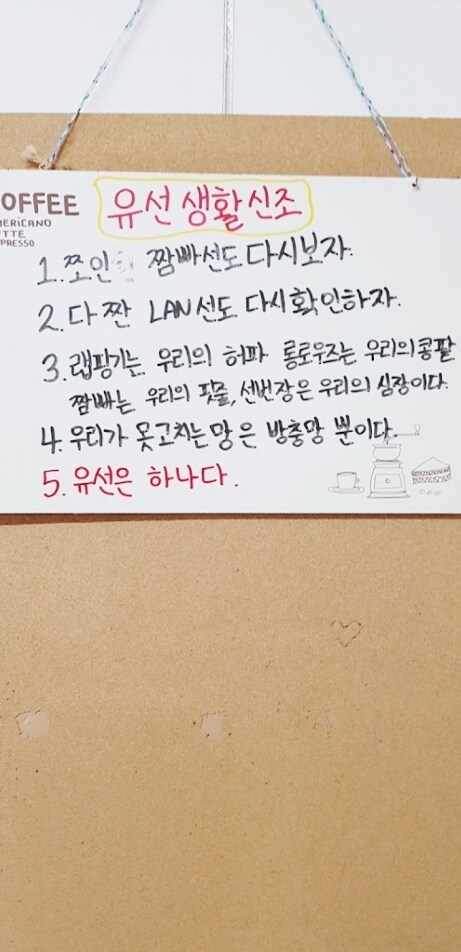 OFFEE
MERICANO
TTE
PRESSO
유선 생활신조
1. 쪼인 짬빠선도 다시보자.
2. 다 짠 LAN선도 다시 확인하자.
3. 랩핑기는 우리의 허파 롱로우즈는 우리의 콩팥
짬빠는 우리의 핏줄, 선번장은 우리의 심장이다.
4. 우리가 못고치는 망은 방충망 뿐이다.
5. 유선은 하나다.